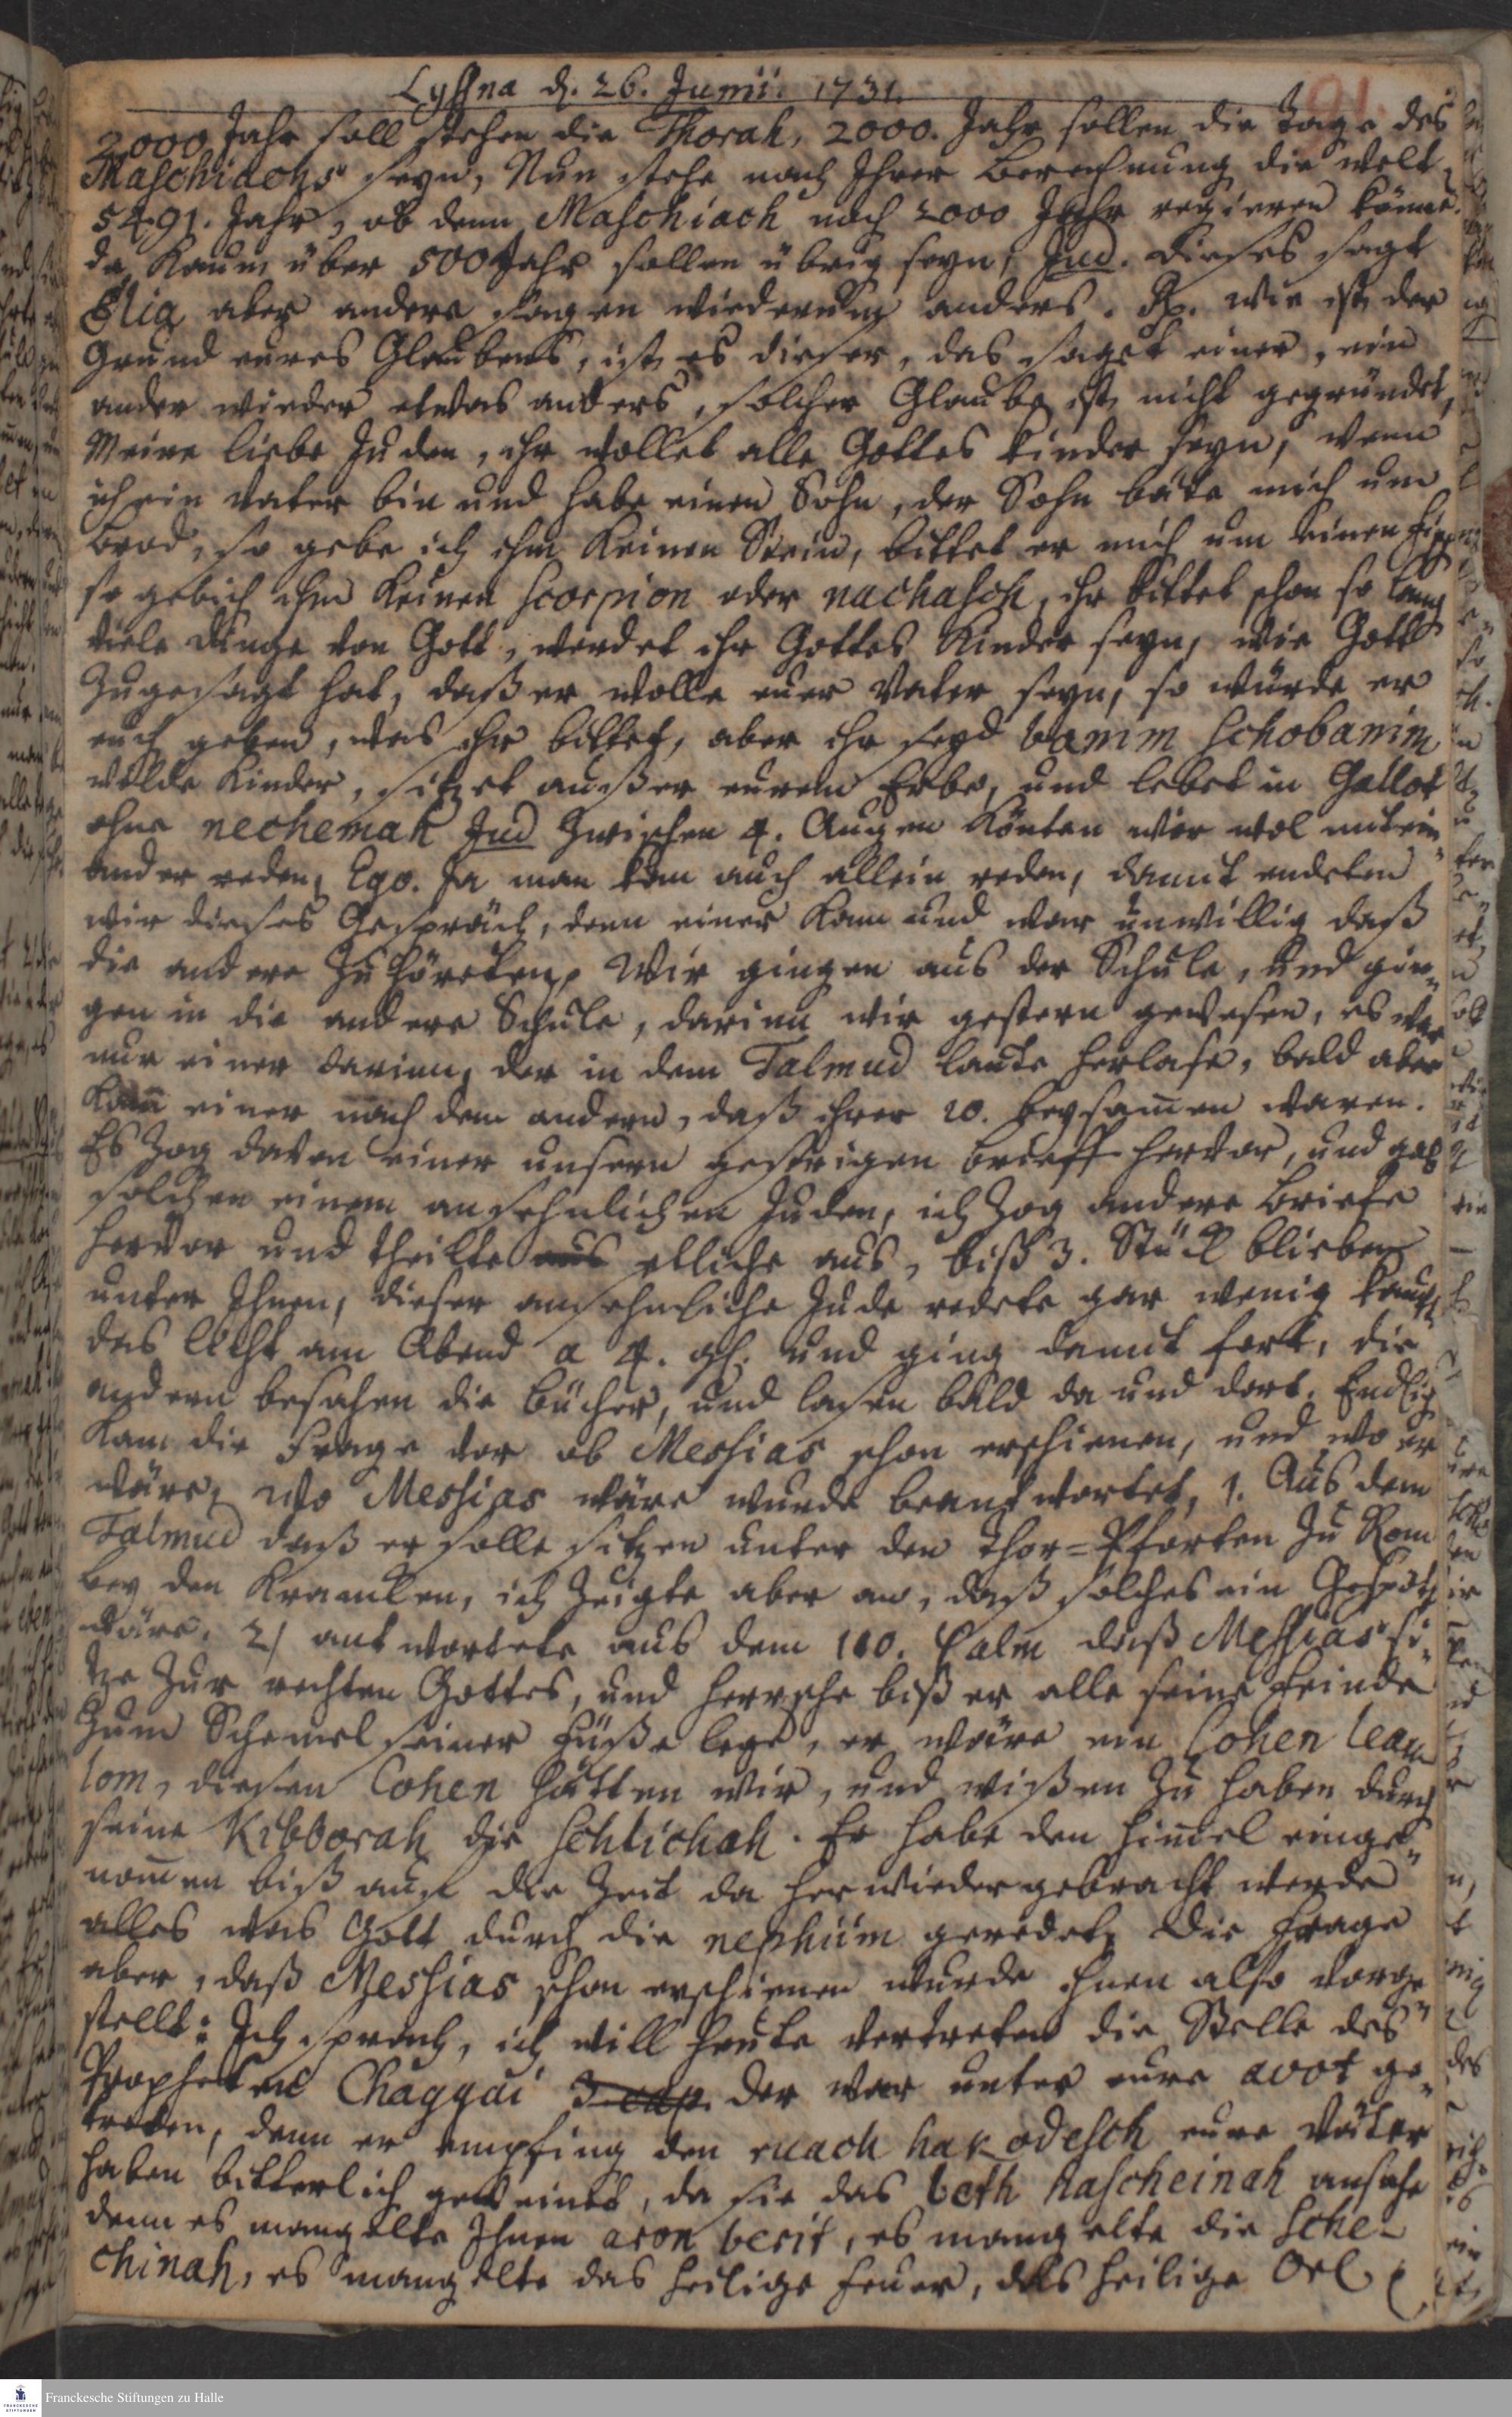 Lyssna d. 26. Junii. 1731.
91.
2000 Jahr soll stehen die Thorah, 2000. Jahr sollen die Tage des
Maschiachs seyn, Nun stehe nach Ihrer Berechnung die Welt
5491. Jahr, ob denn Maschiach noch 2000 Jahr regieren könne.
da kaum über 500 Jahr sollen übrig seyn, Jud. Dieses sagt
Elia aber andere sagen wiederum anders. Rp. wie ist der
Grund eures Glaubens, ist es dieser, das saget einer, ein
ander wieder etwas anders, solcher Glaube ist nicht gegründet,
Meine liebe Juden, ihr wollet alle Gottes Kinder seyn, wenn
ich ein Vater bin und habe einen Sohn, der Sohn bäte mich um
Brod, so gebe ich ihm keinen Stein, bittet er mich um einen
so geb ich ihm keinen scorpion oder nachasch, ihr bittet schon so lang
viele Dinge von Gott, werdet ihr Gottes Kinder seyn, wie Gott
zugesagt hat, daß er wolle euer Vater seyn, so würde er
euch geben, was ihr bittet, aber ihr seyd banim schobanim
wilde Kinder, sitzet außer eurem Erbe, und lebet in Gallot
ohne nechemah Jud zwischen 4. Augen könten wir wol mit ein„
ander reden, Ego. Ja man kan auch allein reden, damit endeten
wir dieses Gespräch, denn einer kam und war unwillig daß
die andere zuhöreten, Wir gingen aus der Schule, und gin„
gen in die andere Schule, darinn wir gestern gewesen, es war
nur einer darinn, der in dem Talmud laute herlase, bald aber
kam einer nach dem andern, daß ihrer 10. beysamen waren.
Es zog davon einer unsern gestrigen brieff hervor, und gab
solchen einem ansehnlichen Juden, ich zog andere Briefe
hervor und theilte aus etliche aus, biß 3. Stück blieben
unter Ihnen, dieser ansehnliche Jude redete gar wenig kauft
das Licht am Abend a 4. gl. und ging damit fort, die
andern besahen die Bücher, und lasen bald da und dort. Endlich
kam die Frage vor ob Messias schon erschienen, und wo er
wäre, Wo Messias wäre wurde beantwortet, 1. Aus dem
Talmud daß er solle sitzen unter den Thor=Pforten zu Rom
bey den Krancken, ich zeigte aber an, daß solches ein Gespött
wäre. 2) antwortete aus dem 110. Psalm daß Messias si„
tze zur rechten Gottes, und herrsche biß er alle seine Feinde
zum Schemel seiner Füße lege, er wäre ein Cohen leau
lom, diesen Cohen hätten wir, und wißen zu haben durch
seine Kibborah die Schlichah. Er habe den Himel einge„
nomen biß auf die Zeit da herwiedergebracht werde
alles was Gott durch die nephiim geredet. Die Frage
aber, daß Messias schon erschienen wurde ihnen also vorge„
stellt: Ich sprach, ich will heute vertreten die Stelle des
Propheten Chaggai 3 cap. der war unter eure avot ge„
treten, denn er empfing den ruach hakodesch eure Väter
haben bitterlich geweinet, da sie das beth hascheinah ansahe
denn es mangelte Ihnen aron berit, es mangelte die Sche-
chinah, es mangelte das heilige Feuer, das heilige Oel
Franckesche Stiftungen zu Halle